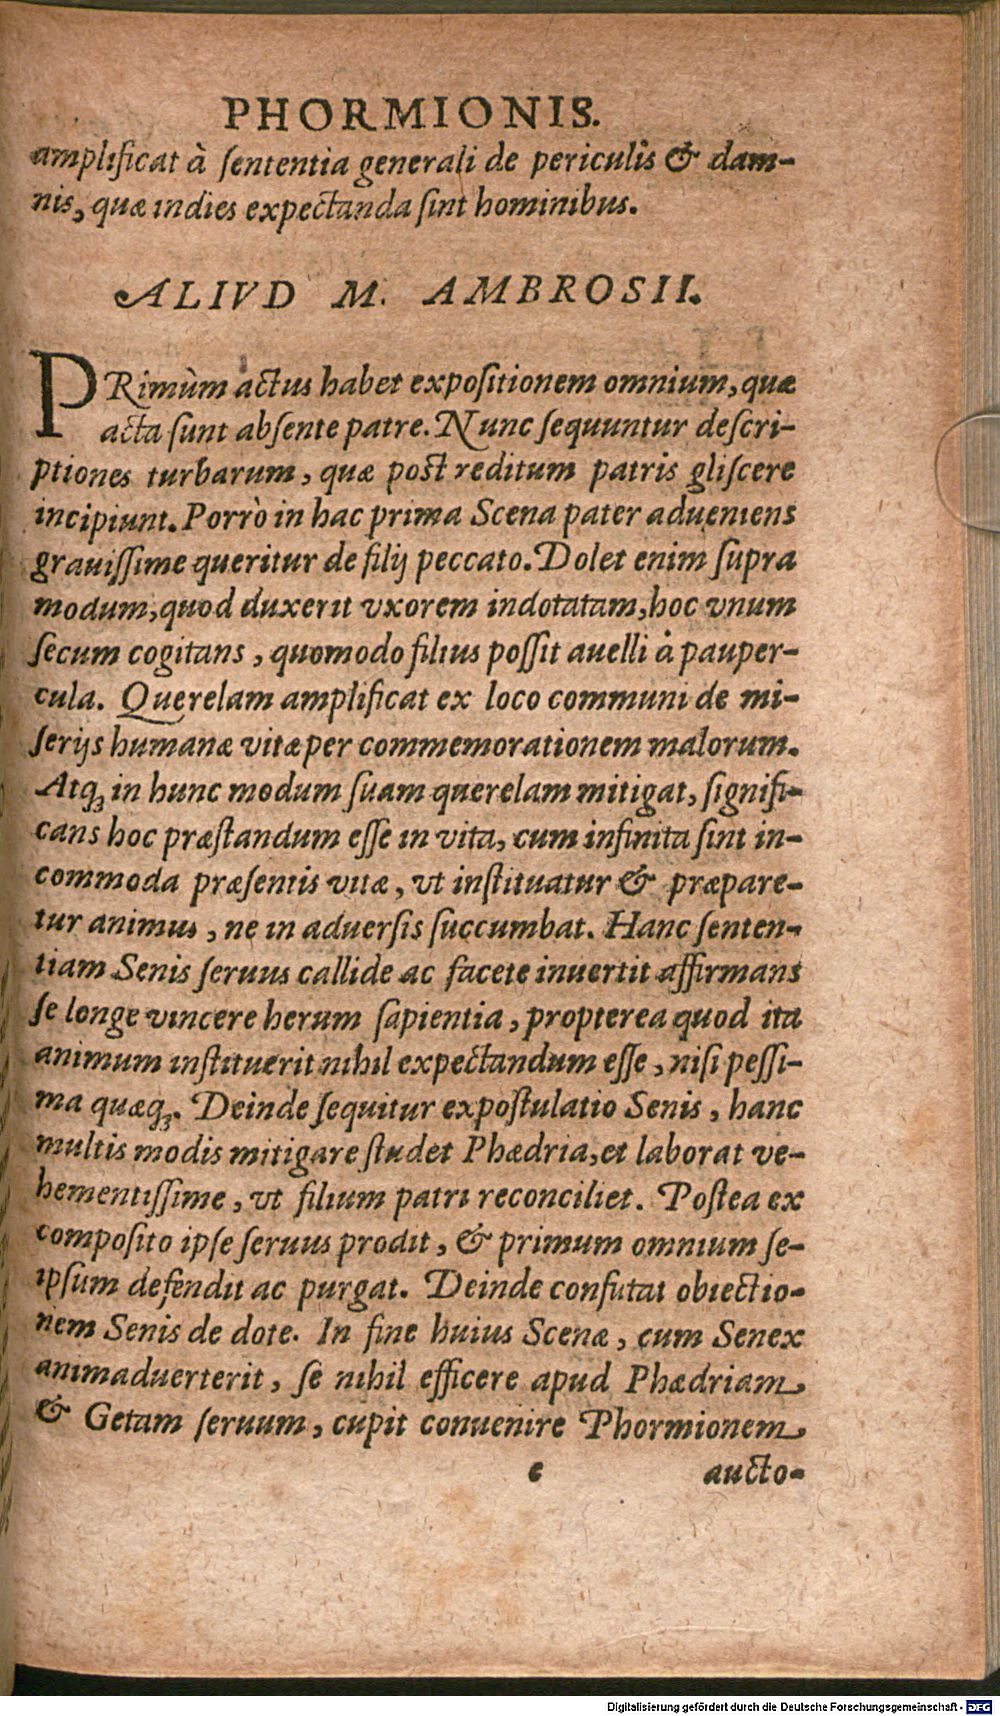 PHORMIONIS.
amplificat à ſententia generali de periculis & dam-
nis, quæ indies expectanda ſint hominibus.
ALIVD M. AMBROSII.
PRimùm actus habet expoſitionem omnium, quæ
acta ſunt abſente patre. Nunc ſequuntur deſcri-
ptiones turbarum, quæ post reditum patris gliſcere
incipiunt. Porrò in hac prima Scena pater adueniens
grauiſſime queritur de filij peccato. Dolet enim ſupra
modum, quod duxerit vxorem indotatam, hoc vnum
ſecum cogitans, quomodo filius poſſit auelli à pauper-
cula. Querelam amplificat ex loco communi de mi-
ſerijs humanæ vitæ per commemorationem malorum.
Atq; in hunc modum ſuam querelam mitigat, ſignifi-
cans hoc præſtandum eſſe in vita, cum infinita ſint in-
commoda præſentis vitæ, vt inſtituatur & præpare-
tur animus, ne in aduerſis ſuccumbat. Hanc ſenten-
tiam Senis ſeruus callide ac facete inuertit affirmans
ſe longe vincere herum ſapientia, propterea quod ita
animum inſtituerit nihil expectandum eſſe, niſi peſſi-
ma quæq;. Deinde ſequitur expoſtulatio Senis, hanc
multis modis mitigare ſtudet Phædria, et laborat ve-
hementiſſime, vt filium patri reconciliet. Poſtea ex
compoſito ipſe ſeruus prodit, & primum omnium ſe-
ipſum defendit ac purgat. Deinde confutat obiectio-
nem Senis de dote. In fine huius Scenæ, cum Senex
animaduerterit, ſe nihil efficere apud Phædriam
& Getam ſeruum, cupit conuenire Phormionem
e aucto-
Digitalisierung gefördert durch die Deutsche Forschungsgemeinschaft - DFG